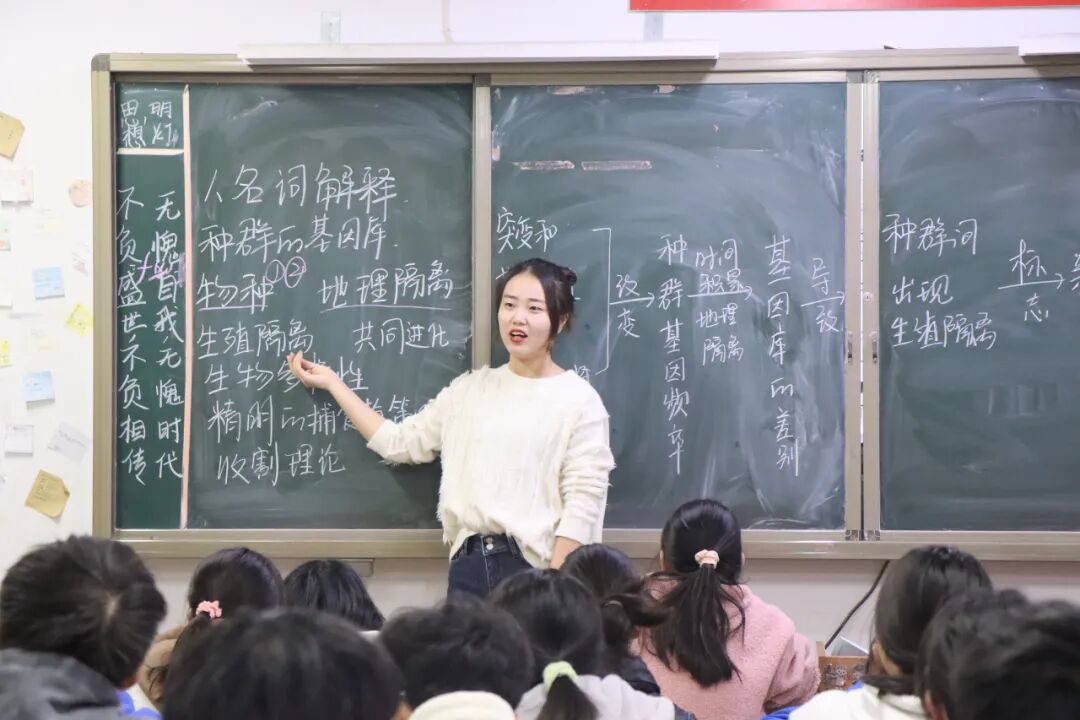 思想
明灯
无愧自我无愧时代
不负盛世不负相传
1、名词解释
种群的基因库
物种①② 地理隔离
生殖隔离 共同进化
生物多样性
精明的捕食策
收割理论
突变和
改变
种群基因频率
时间
积累
地理
隔离
基因库的差别
导致
种群间
出现
生殖隔离
标
志